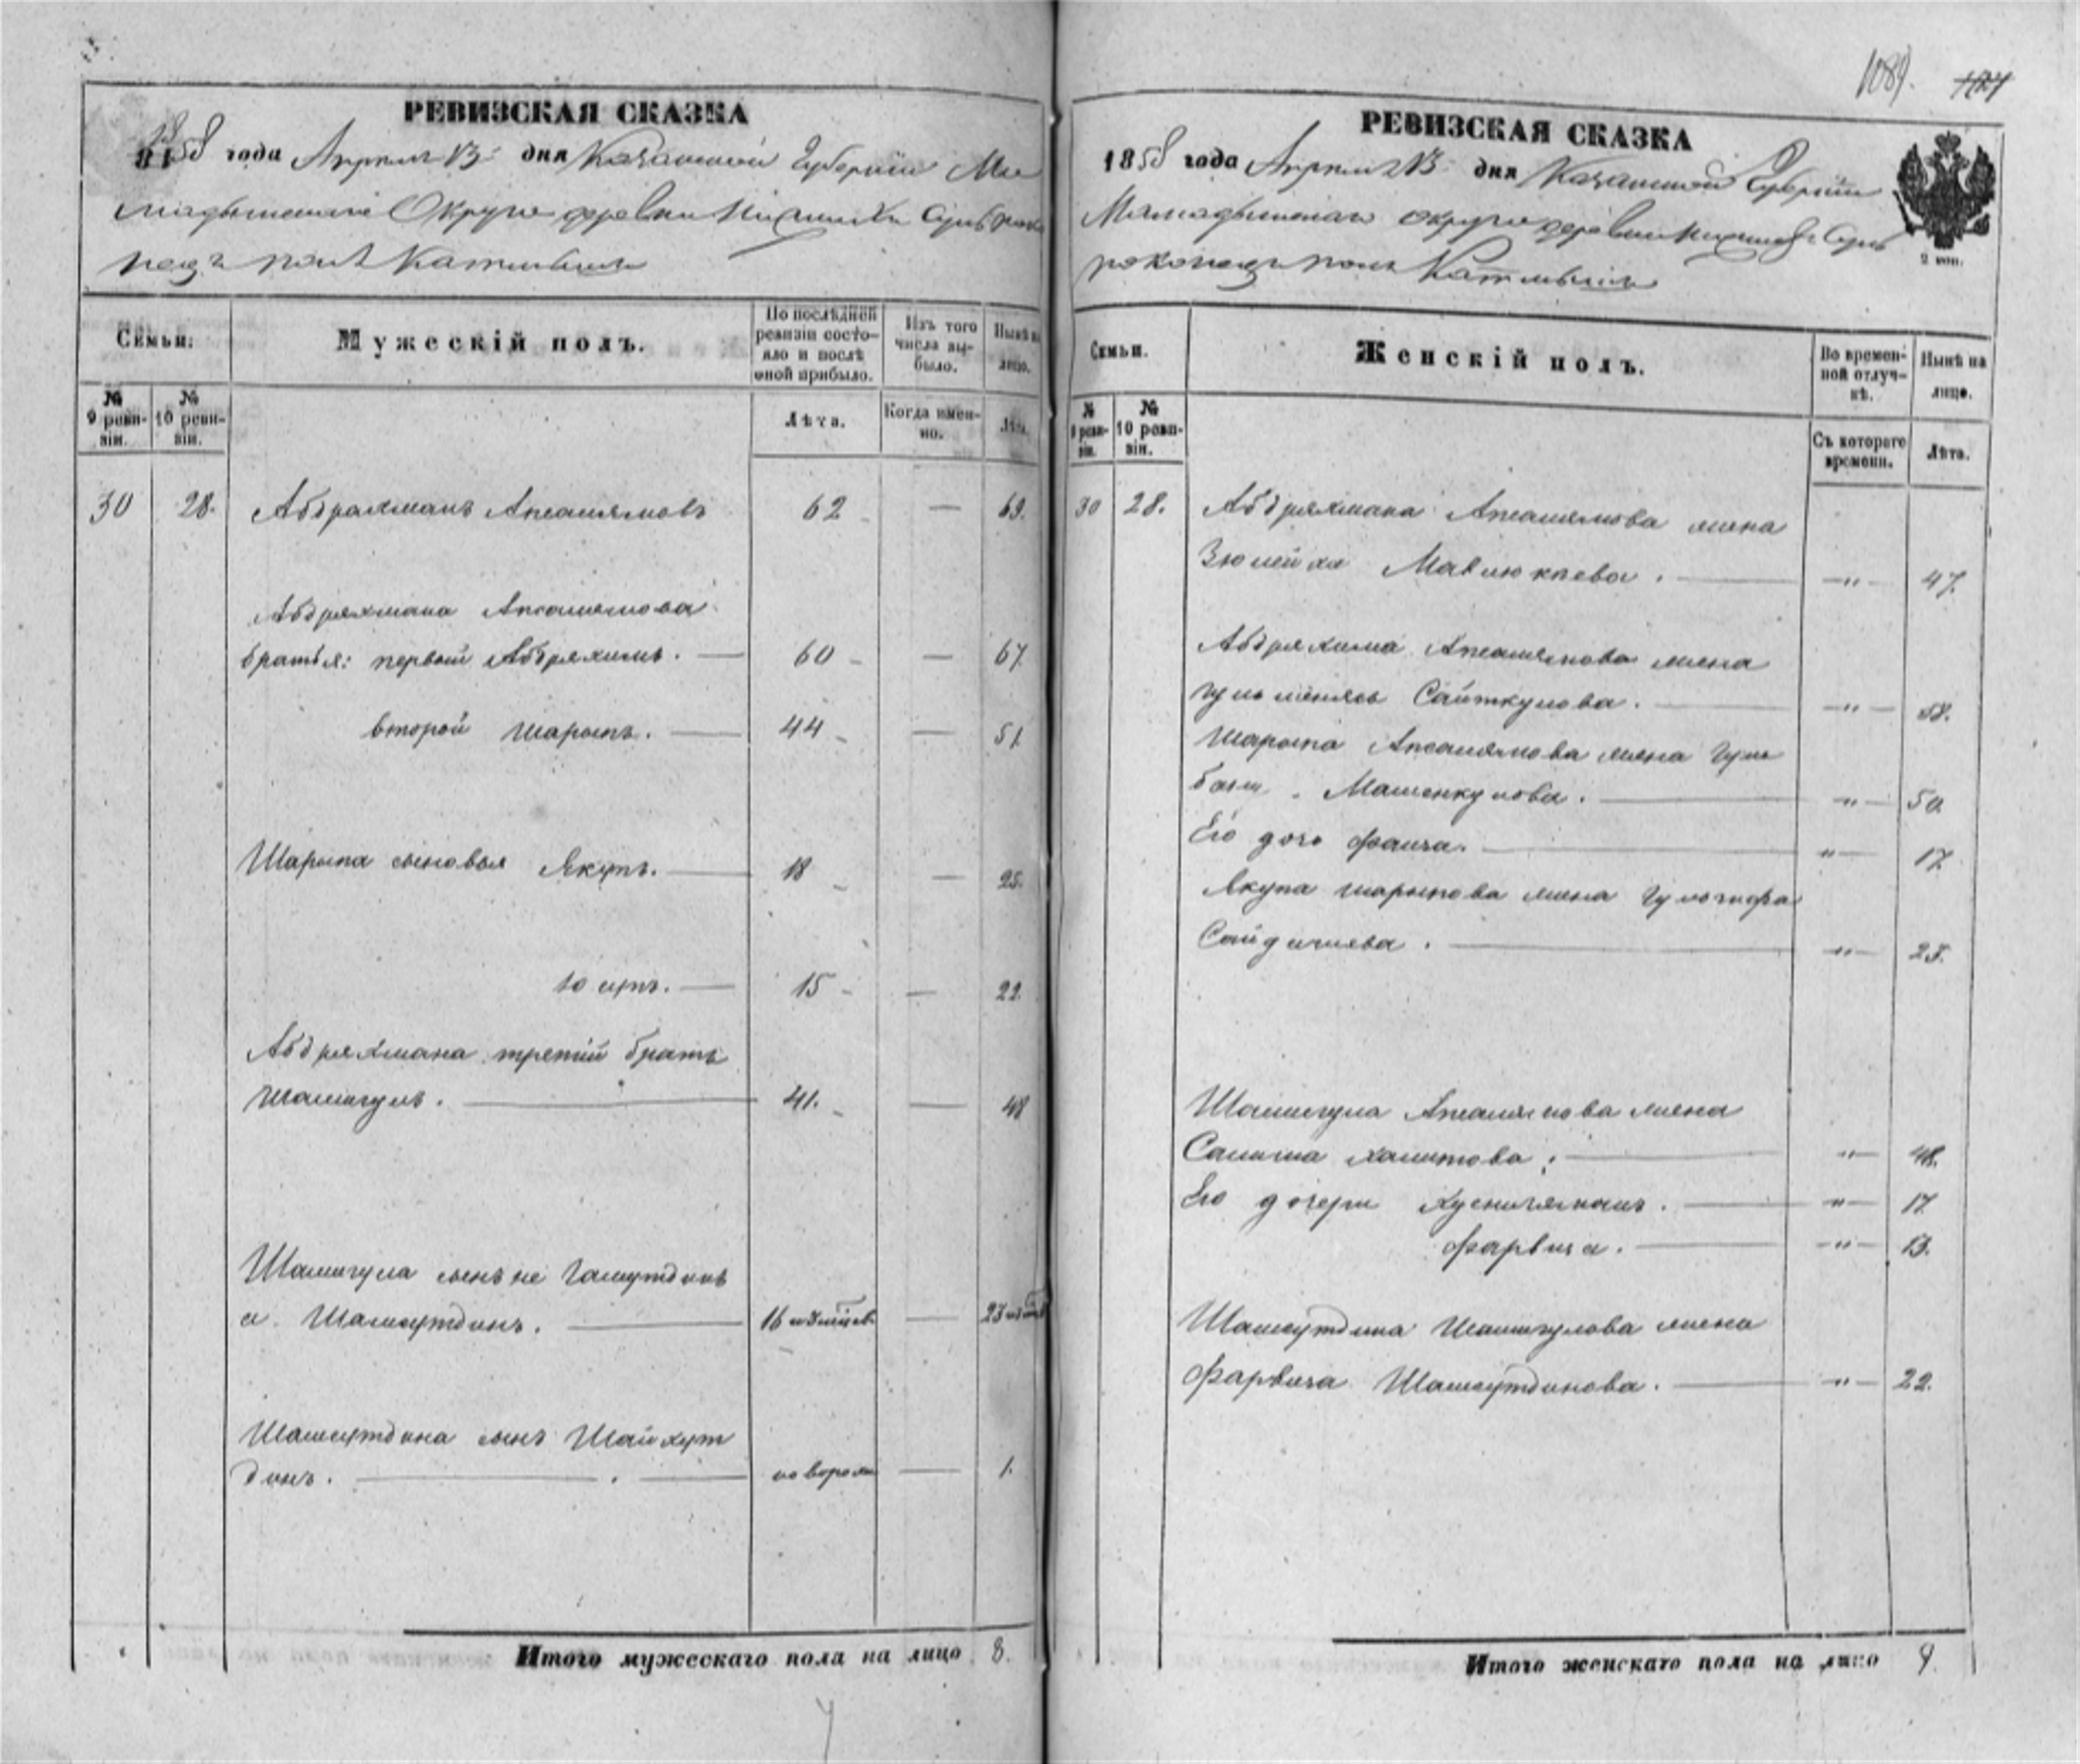 1089. 127
РЕВИЗСКАЯ СКАЗКА
1858 года Апреля 13 дня Казанской Губернiи Ма
мадышскаго Округа деревни
подъ
Семьи.
Мужескiй полъ.
По послѣдней ревизiи состо-
яло и послѣ
оной прибыло.
Изъ того
числа вы-
было.
Нынѣ на
лицо.
№
9 реви-
зiи.
№
10 реви-
зiи.
Лѣта.
Когда имен-
но.
Лѣта.
30 28. Абдрахманъ Апсалямовъ 62 — 69.
Абдряхмана Апсалямова
братья: первый Абдряхимъ. — 60 — 67.
второй Шарыпъ. — 44 — 51.
Шарыпа сыновья Якупъ. — 18 — 25.
Юсупъ. — 15 — 22.
Абдряхмана третiй братъ
Шамигулъ. — 41. — 48
Шамигула сынъ не Гамутдинъ
а Шамсутдинъ. — 16 —
Шамсутдина сынъ Шайхут
динъ. — новорож — 1.
Итого мужескаго пола на лицо 8.
РЕВИЗСКАЯ СКАЗКА
1858 года Апреля 13 дня Казанской Губернiи
Мамадышскаго округа деревни
2 коп.
Семьи.
Женскiй полъ.
Во времен-
ной отлуч-
кѣ.
Нынѣ на
лицо.
№
9 реви-
зiи.
№
10 реви-
зiи.
Съ котораго
времени.
Лѣта.
30 28. Абдряхмана Апсалямова жена
Зюлейха Мавлюкаева. — " — 47.
Абдряхима Апсалямова жена
Сайткулова. — " — 58.
Шарыпа Апсалямова жена Гуль
Машенкулова. — " — 50.
Его дочь Фаиза. — " — 17.
Якупа Шарыпова жена
— " — 25.
Шамигула Апсалямова жена
Салима Хамитова. — " — 48.
Его дочери Хуснизямалъ. — " — 17.
Фарвиза. — " — 13.
Шамсутдина Шамигулова жена
Фарвиза Шамсутдинова. — " — 22.
Итого женскаго пола на лицо 9.